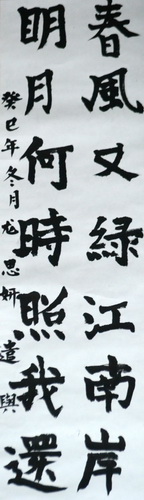 春風又綠江南岸
明月何時照我還
癸巳年冬月龙思妍遣興